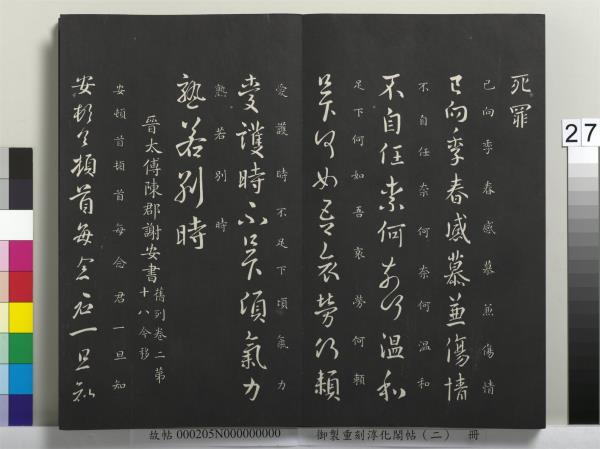 死罪
已向季春感慕兼傷情
已向季春感慕兼傷情
不自任奈何奈何溫和
不自任奈何奈何溫和
足下何如吾哀勞何賴
足下何如吾哀勞何賴
愛護時不足下頃氣力
愛護時不足下頃氣力
熟若別時
熟若別時
晉太傅陳郡謝安書
舊列卷二第
十八今移
安頓首頓首每念君一旦知
安頓首頓首每念君一旦知
27
故帖 000205N000000000 御製重刻淳化閣帖(二) 冊